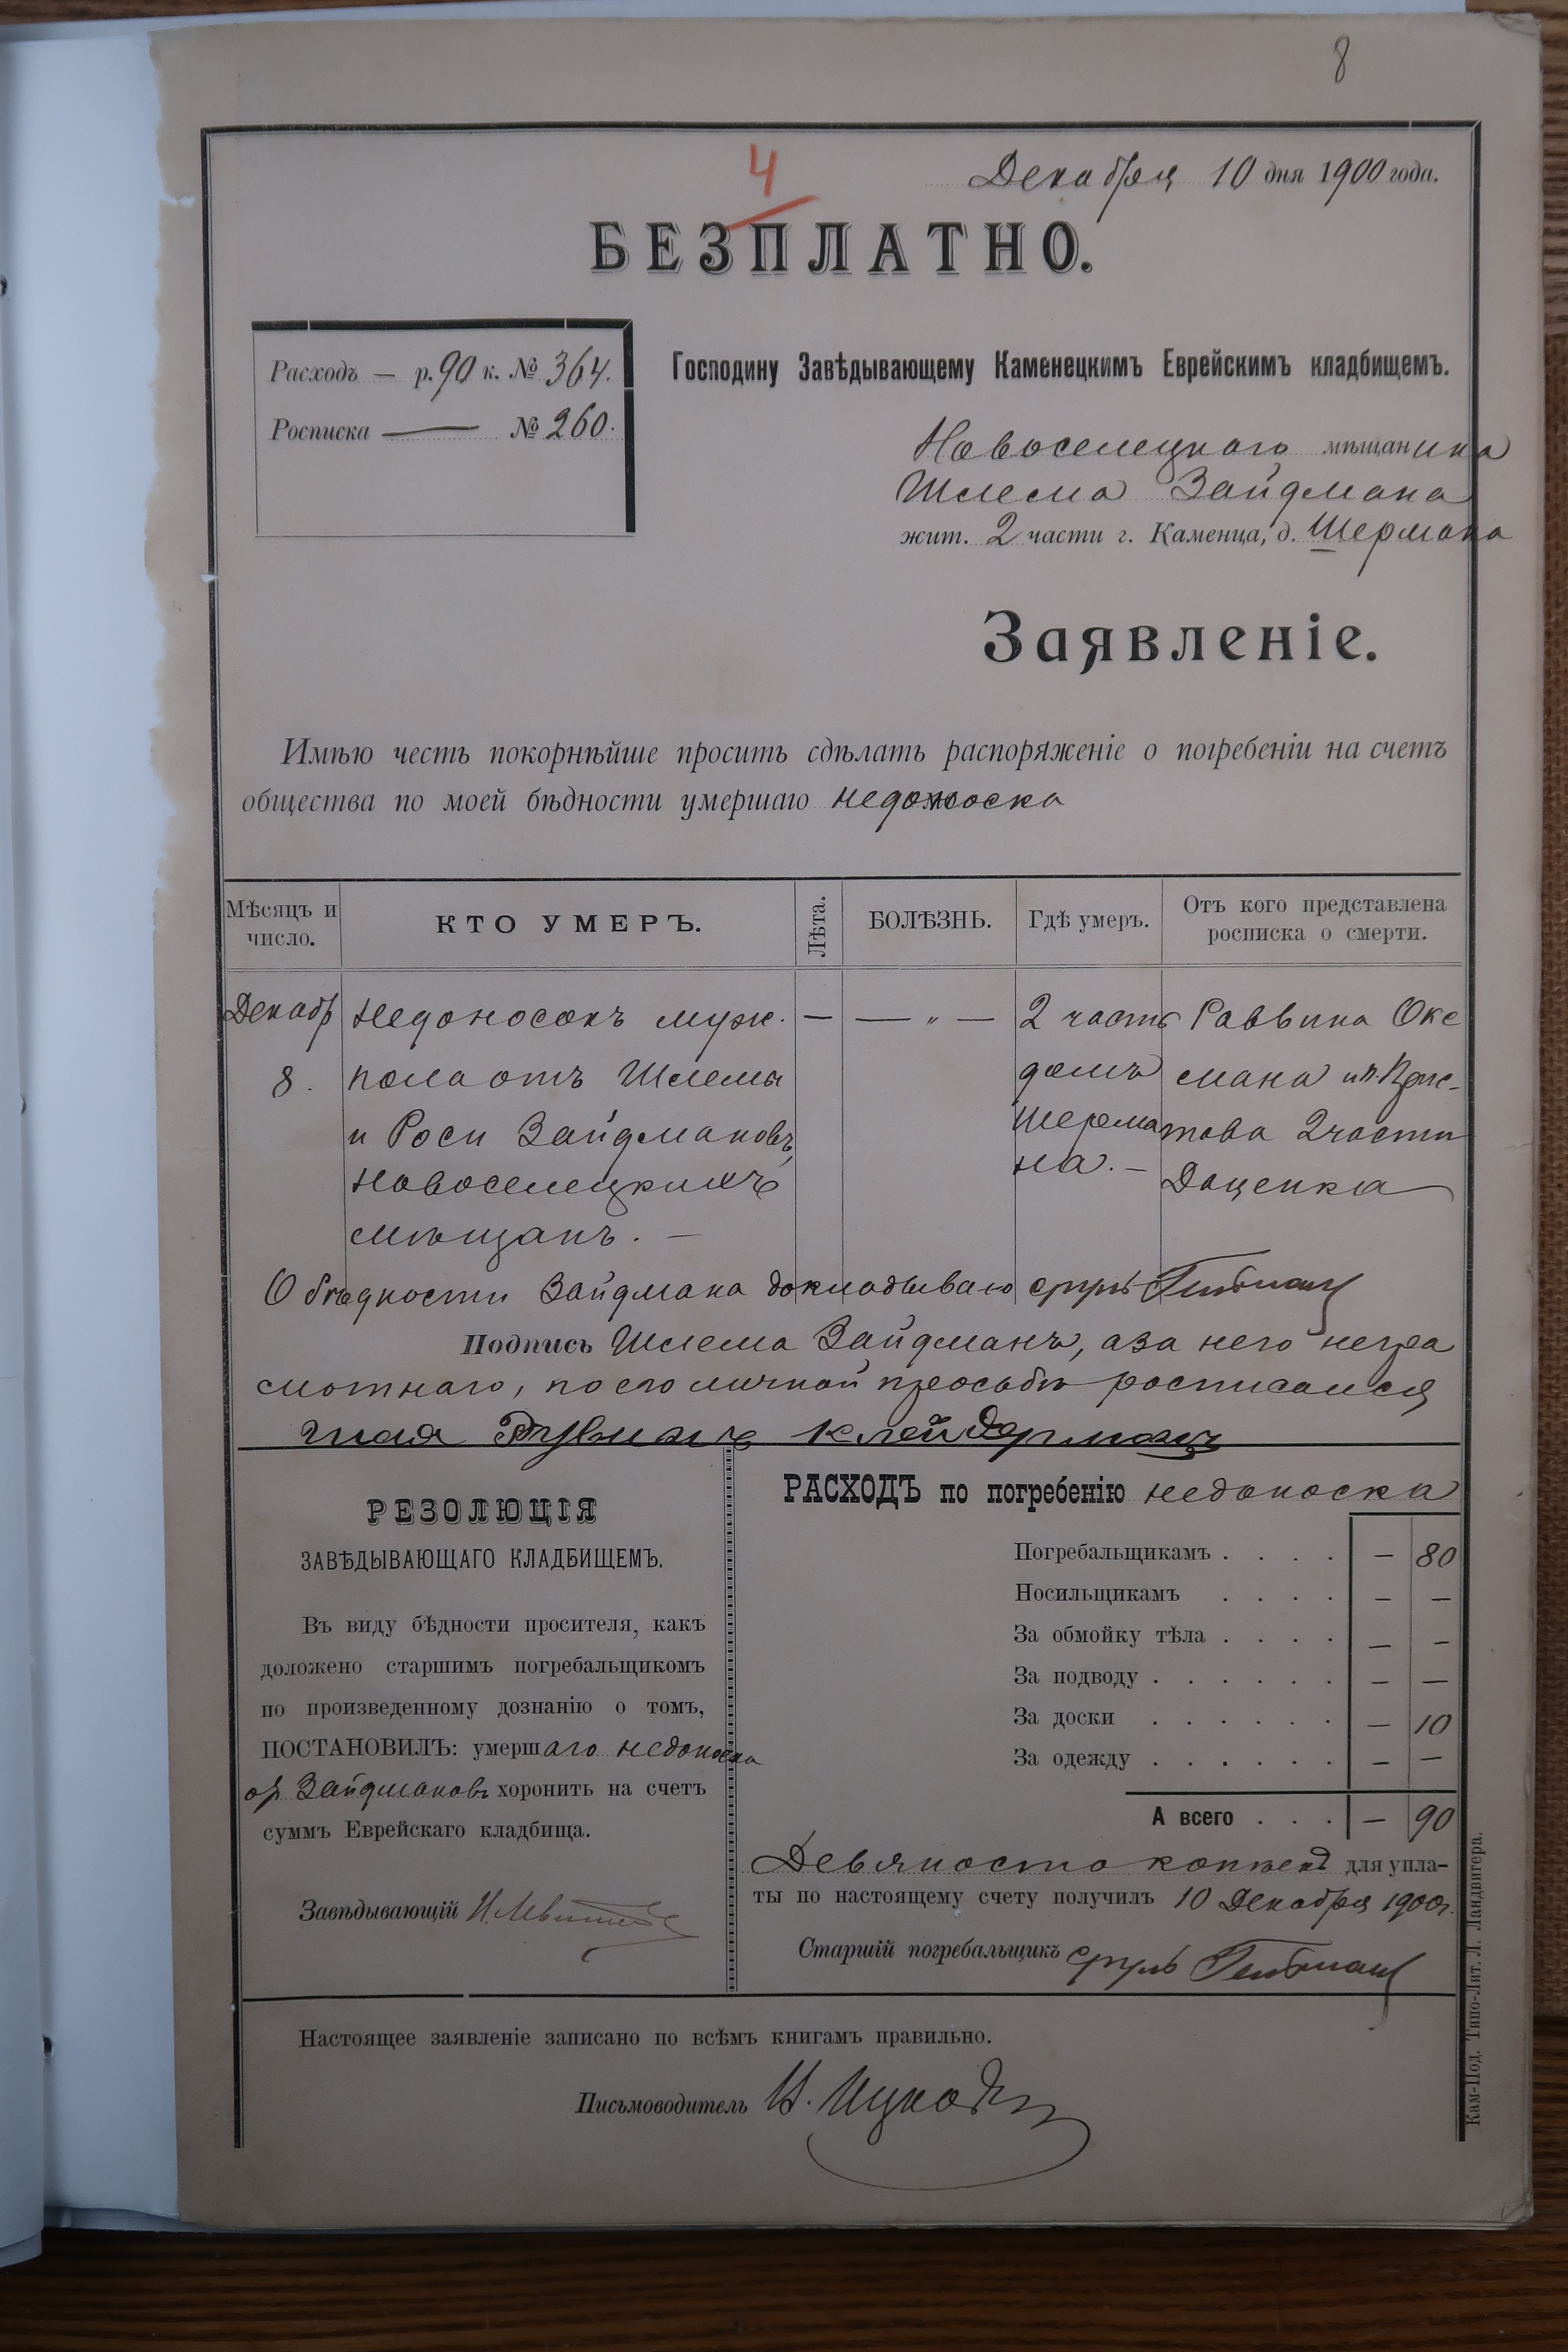 8
4
Декабря 10 дня 1900 года.
БЕЗПЛАТНО.
Расходъ — р. 90 к. № 364.
Росписка — № 260.
Господину Завѣдывающему Каменецкимъ Еврейскимъ кладбищемъ.
Новоселецкаго мѣщанина
Шлема Зайдмана
жит. 2 части г. Каменца, д. Шермана
Заявленіе.
Имѣю честь покорнѣйше просить сдѣлать распоряженіе о погребеніи на счетъ
общества по моей бѣдности умершаго недоноска
Мѣсяцъ и число.
КТО УМЕРЪ.
Лѣта.
БОЛѢЗНЬ.
Гдѣ умеръ.
Отъ кого представлена росписка о смерти.
Декабр недоносокъ муж. — — „ — 2 часть Раввина Оке
8. пола отъ Шлемы домъ смана и
и Роси Зайдмановъ, Шерма това 2 части
Новоселецкихъ на. — Доценка
мѣщанъ. —
О бѣдности Зайдмана докладываю сруль
Подпись Шлема Зайдманъ, а за него негра
мотнаго, по его личной просьбѣ росписался
Клейдерманъ
РЕЗОЛЮЦІЯ
ЗАВѢДЫВАЮЩАГО КЛАДБИЩЕМЪ.
Въ виду бѣдности просителя, какъ
доложено старшимъ погребальщикомъ
по произведенному дознанію о томъ,
ПОСТАНОВИЛЪ: умершаго недоноска
от Зайдмановъ хоронить на счетъ
суммъ Еврейскаго кладбища.
Завѣдывающій
РАСХОДЪ по погребенію недоноска
Погребальщикамъ . . . . — 80
Носильщикамъ . . . . — —
За обмойку тѣла . . . . — —
За подводу . . . . . . — —
За доски . . . . . . — 10
За одежду . . . . . . — —
А всего . . . — 90
Девяносто копѣекъ для упла-
ты по настоящему счету получилъ 10 Декабря 1900г.
Старшій погребальщикъ сруль
Настоящее заявленіе записано по всѣмъ книгамъ правильно.
Письмоводитель
Кам-Под. Типо-Лит. Л. Ландвигера.